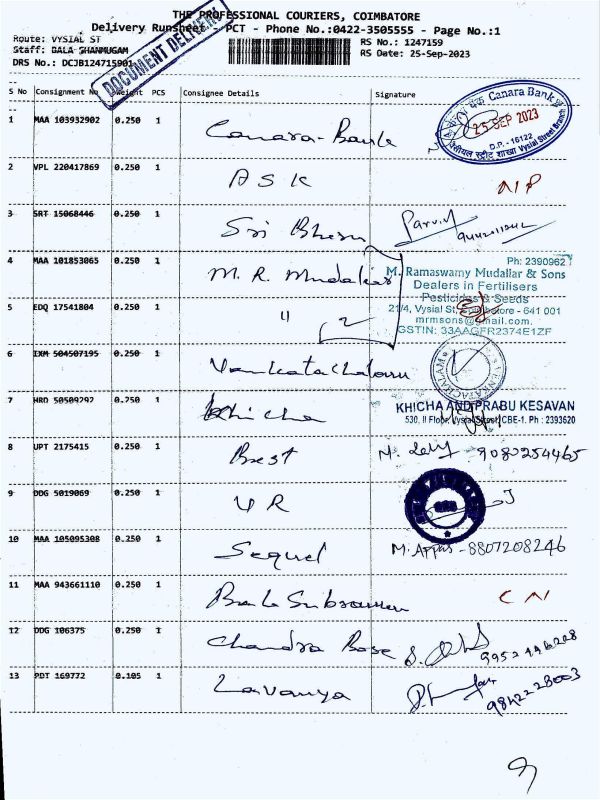 THE PROFESSIONAL COURIERS, COIMBATORE
Delivery Runsheet - PCT - Phone No.:0422-3505555 - Page No.:1
Route: VYSIAL ST
RS No.: 1247159
Staff: BALA SHANMUGAM
RS Date: 25-Sep-2023
DRS No.: DCJB124715901
DOCUMENT DELIVERY
S No Consignment No Weight PCS Consignee Details Signature
1 MAA 103932902 0.250 1 Canara-Bank
Canara Bank
25 SEP 2023
D.P.-16122
Vysial Street Branch
2 VPL 220417869 0.250 1 A S K N/P
3 SRT 15068446 0.250 1 Sri
4 MAA 101853065 0.250 1 M. R. Mudaliar
Ph: 2390962
M. Ramaswamy Mudaliar & Sons
Dealers in Fertilisers
Pesticides & Seeds
5 EDQ 17541804 0.250 1 " 2
21/4, Vysial St, Coimbatore - 641 001
mrmsons@gmail.com.
GSTIN: 33AAGFR2374E1ZF
6 IXM 504507195 0.250 1
VENKATACHALAM
7 HRD 50509292 0.250 1 Khicha
KHICHA AND PRABU KESAVAN
530, II Floor, Vysial Street, CBE-1. Ph : 2393620
8 UPT 2175415 0.250 1 Best 9080254465
9 DDG 5019069 0.250 1 V R
10 MAA 105095308 0.250 1 Sequel M. -8807208246
11 MAA 943661110 0.250 1 C N
12 DDG 106375 0.250 1 Chandra Bose
13 PDT 169772 0.105 1 Lavanya 9842228003